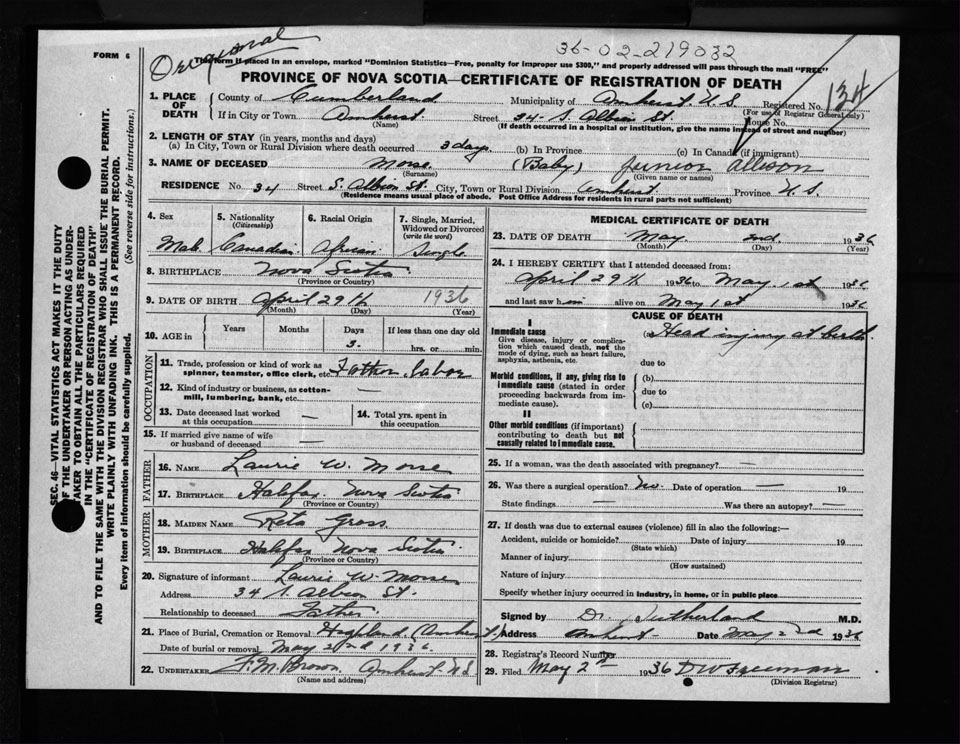 FORM 6
Original
36-02-219032
This form if placed in an envelope, marked "Dominion Statistics—Free, penalty for improper use $300," and properly addressed will pass through the mail "FREE"
PROVINCE OF NOVA SCOTIA—CERTIFICATE OF REGISTRATION OF DEATH
1. PLACE OF DEATH
County of Cumberland Municipality of Amherst N.S. Registered No. 134
(For use of Registrar General only)
If in City or Town Amherst Street 34- S. Albion St. House No.
(Name) (If death occurred in a hospital or institution, give the name instead of street and number)
2. LENGTH OF STAY (in years, months and days)
(a) In City, Town or Rural Division where death occurred 3 days. (b) In Province (c) In Canada (if immigrant)
3. NAME OF DECEASED Morse. (Baby) Junior Allison
(Surname) (Given name or names)
RESIDENCE No. 34 Street S. Albion St. City, Town or Rural Division Amherst Province N.S.
(Residence means usual place of abode. Post Office Address for residents in rural parts not sufficient)
4. Sex Male
5. Nationality (Citizenship) Canadian
6. Racial Origin African
7. Single, Married, Widowed or Divorced (write the word) Single
8. BIRTHPLACE Nova Scotia
(Province or Country)
9. DATE OF BIRTH April 29th 1936
(Month) (Day) (Year)
10. AGE in Years Months Days If less than one day old
3. hrs. or min.
OCCUPATION
11. Trade, profession or kind of work as spinner, teamster, office clerk, etc. Father. labor
12. Kind of industry or business, as cotton-mill, lumbering, bank, etc.
13. Date deceased last worked at this occupation —
14. Total yrs. spent in this occupation
15. If married give name of wife or husband of deceased —
FATHER
16. NAME Laurie W. Morse
17. BIRTHPLACE Halifax Nova Scotia
(Province or Country)
MOTHER
18. MAIDEN NAME Reta Gross
19. BIRTHPLACE Halifax Nova Scotia
(Province or Country)
20. Signature of informant Laurie W. Morse
Address 34 S. Albion St.
Relationship to deceased Father.
21. Place of Burial, Cremation or Removal Highland (Amherst.)
Date of burial or removal May 2nd 1936.
22. UNDERTAKER F. M. Brown Amherst N.S.
(Name and address)
MEDICAL CERTIFICATE OF DEATH
23. DATE OF DEATH May 2nd. 1936
(Month) (Day) (Year)
24. I HEREBY CERTIFY that I attended deceased from:
April 29th 1936 to May 1st 1936
and last saw him alive on May 1st 1936
CAUSE OF DEATH
I
Immediate cause
Give disease, injury or complication which caused death, not the mode of dying, such as heart failure, asphyxia, asthenia, etc.
(a) Head injury at birth.
due to
Morbid conditions, if any, giving rise to immediate cause (stated in order proceeding backwards from immediate cause).
(b)
due to
(c)
II
Other morbid conditions (if important) contributing to death but not causally related to immediate cause.
25. If a woman, was the death associated with pregnancy? —
26. Was there a surgical operation? No. Date of operation — 19
State findings — Was there an autopsy? —
27. If death was due to external causes (violence) fill in also the following:—
Accident, suicide or homicide? Date of injury 19
(State which)
Manner of injury
(How sustained)
Nature of injury
Specify whether injury occurred in industry, in home, or in public place
Signed by Dr. Sutherland M.D.
Address Amherst Date May 2nd 1936
28. Registrar's Record Number
29. Filed May 2nd 1936 D W Freeman
(Division Registrar)
SEC. 46—VITAL STATISTICS ACT MAKES IT THE DUTY
OF THE UNDERTAKER OR PERSON ACTING AS UNDER-
TAKER TO OBTAIN ALL THE PARTICULARS REQUIRED
IN THE "CERTIFICATE OF REGISTRATION OF DEATH"
AND TO FILE THE SAME WITH THE DIVISION REGISTRAR WHO SHALL ISSUE THE BURIAL PERMIT.
WRITE PLAINLY WITH UNFADING INK. THIS IS A PERMANENT RECORD.
Every item of information should be carefully supplied. (See reverse side for instructions.)